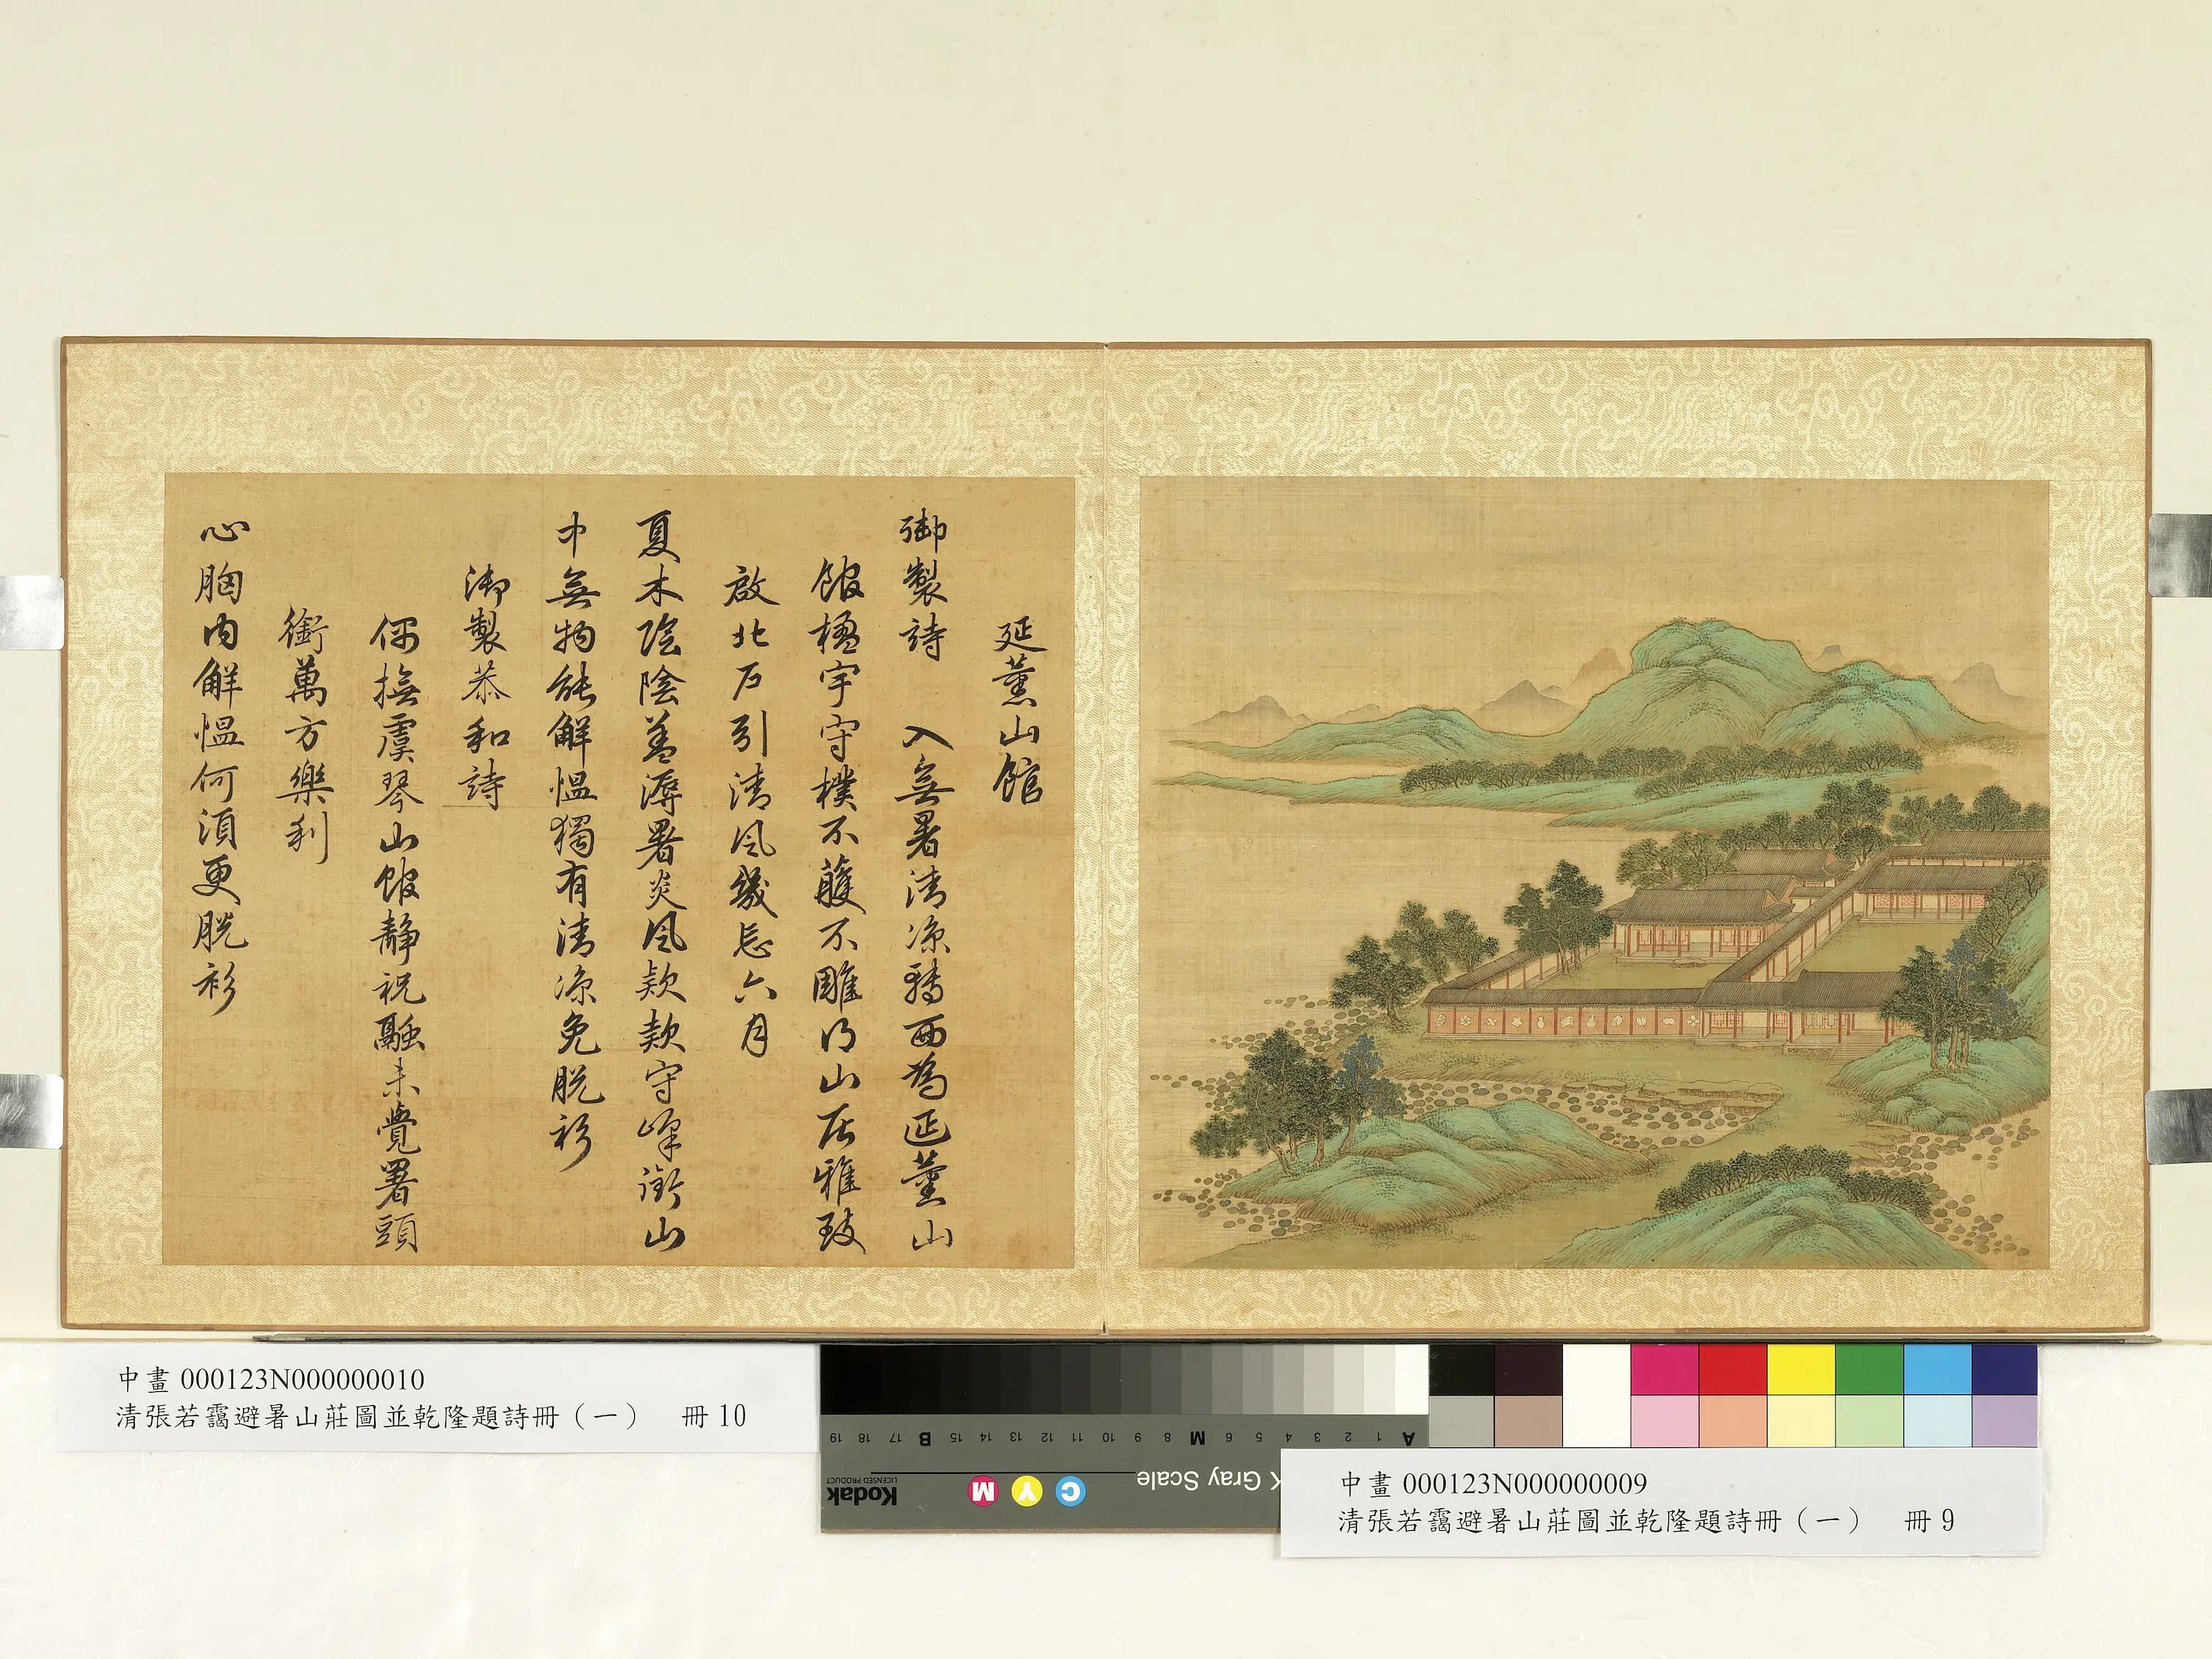 延薰山館
御製詩 入無暑清涼轉西為延薰山
館楹宇守樸不雘不雕得山居雅致
啟北戶引清風幾忘六月
夏木陰陰蓋溽暑炎風款款守峰銜山
中無物能解慍獨有清涼免脫衫
御製恭和詩
偶撫虞琴山館靜祝融未覺署頭
銜萬方樂利
心胸內解慍何須更脫衫
中畫 000123N000000010
清張若靄避暑山莊圖並乾隆題詩冊（一） 冊 10
A 1 2 3 4 5 6 M 8 9 10 11 12 13 14 15 B 17 18 19
Gray Scale
C Y M
Kodak
LICENSED PRODUCT
中畫 000123N000000009
清張若靄避暑山莊圖並乾隆題詩冊（一） 冊 9